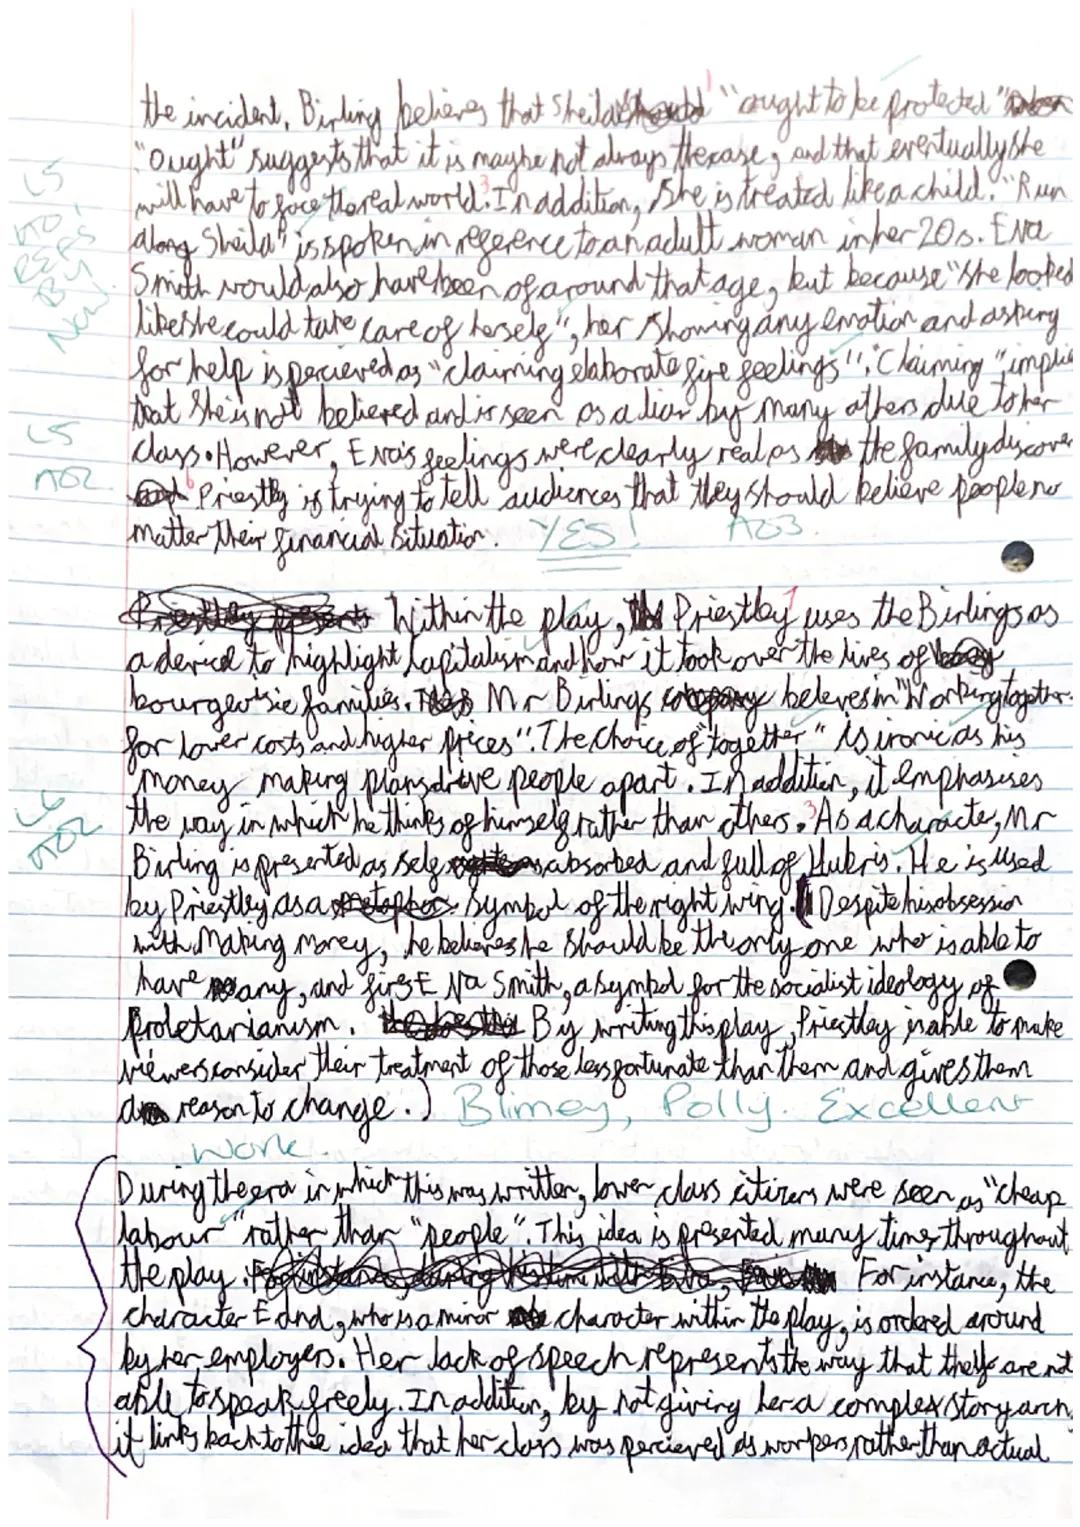 the incident. Birling believes that Sheila "ought to be protected"
"Ought" suggests that it is maybe not always the case, and that eventually she
will have to face the real world. In addition, she is treated like a child. "Run
along Sheila" is spoken in reference to an adult woman in her 20s. Eva
Smith would also have been of around that age, but because "she looked
like she could take care of herself", her showing any emotion and asking
for help is percieved as "claiming elaborate fine feelings". "Claiming" implie
that she is not believed and is seen as a liar by many others due to her
class. However, Eva's feelings were clearly real as the family discover
Priestley is trying to tell audiences that they should believe people no
matter their financial situation. YES! AO3.
L5
AO2
REFS
BY
NOW!
L5
AO2
Within the play, Priestley uses the Birlings as
a device to highlight capitalism and how it took over the lives of
bourgeoisie families. Mr Birlings beleves in "Working together
for lower costs and higher prices". The choice of "together" is ironic as his
money making plans drive people apart. In addition, it emphasises
the way in which he thinks of himself rather than others. As a characte, Mr
Birling is presented as self absorbed and full of Hubris. He is used
by Priestley as a symbol of the right wing. Despite his obsession
with making money, he believes he should be the only one who is able to
have any, and fires Eva Smith, a symbol for the socialist ideology of
Proletarianism. By writing this play, Priestley is able to make
viewers consider their treatment of those less fortunate than them and gives them
a reason to change.) Blimey, Polly. Excellent
work.
L6
AO2
During the era in which this was written, lower class citizens were seen as "cheap
labour" rather than "people". This idea is presented many times throughout
the play. For instance, the
character Edna, who is a minor character within the play, is ordered around
by her employers. Her lack of speech represents the way that they are not
able to speak freely. In addition, by not giving her a complex story arch,
it links back to the idea that her class was percieved as workers rather than actual